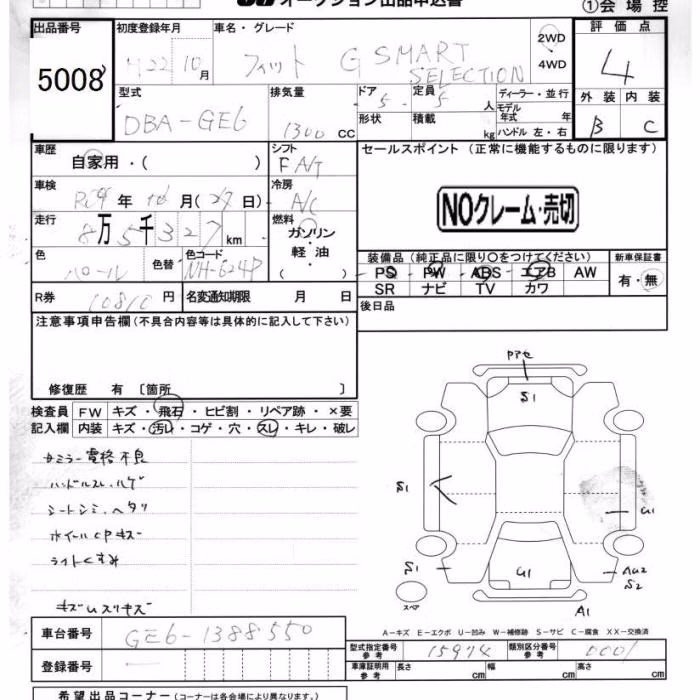 オークション出品申込書 ①会場控
出品番号 初度登録年月 車名・グレード 評価点
5008 H22 10月 フィット G SMART SELECTION 2WD 4WD 4
型式 排気量 ドア 定員 ディーラー・並行 外装 内装
DBA-GE6 1300cc 5 5人 モデル年式 年 B C
形状 積載 kg ハンドル 左・右
車歴 シフト セールスポイント (正常に機能するものに限ります)
自家用・( ) F A/T
車検 冷房
年 月 日) A/C NOクレーム・売切
走行 燃料
8万5千327km ガソリン・軽油・( )
装備品 (純正品に限り〇をつけてください) 新車保証書
色 色替 色コード PS PW ABS エアB AW 有・無
パール NH-624P SR ナビ TV カワ
R券 10810円 名変通知期限 月 日 後日品
注意事項申告欄 (不具合内容等は具体的に記入して下さい)
修復歴 有 〔箇所 〕
検査員 FW キズ・飛石・ヒビ割・リペア跡・×要
記入欄 内装 キズ・汚レ・コゲ・穴・スレ・キレ・破レ
ハンドルスレ・ハゲ
シートシミ、ヘタリ
ライトくすみ
S1
S1
U1
S1
AU2
S2
A1
スペア
A-キズ E-エクボ U-凹み W-補修跡 S-サビ C-腐食 XX-交換済
車台番号 GE6-1388550
型式指定番号 参考 15974 類別区分番号 参考 0001
登録番号
車庫証明用 参考 長さ cm 幅 cm 高さ cm
希望出品コーナー (コーナーは各会場により異なります。)